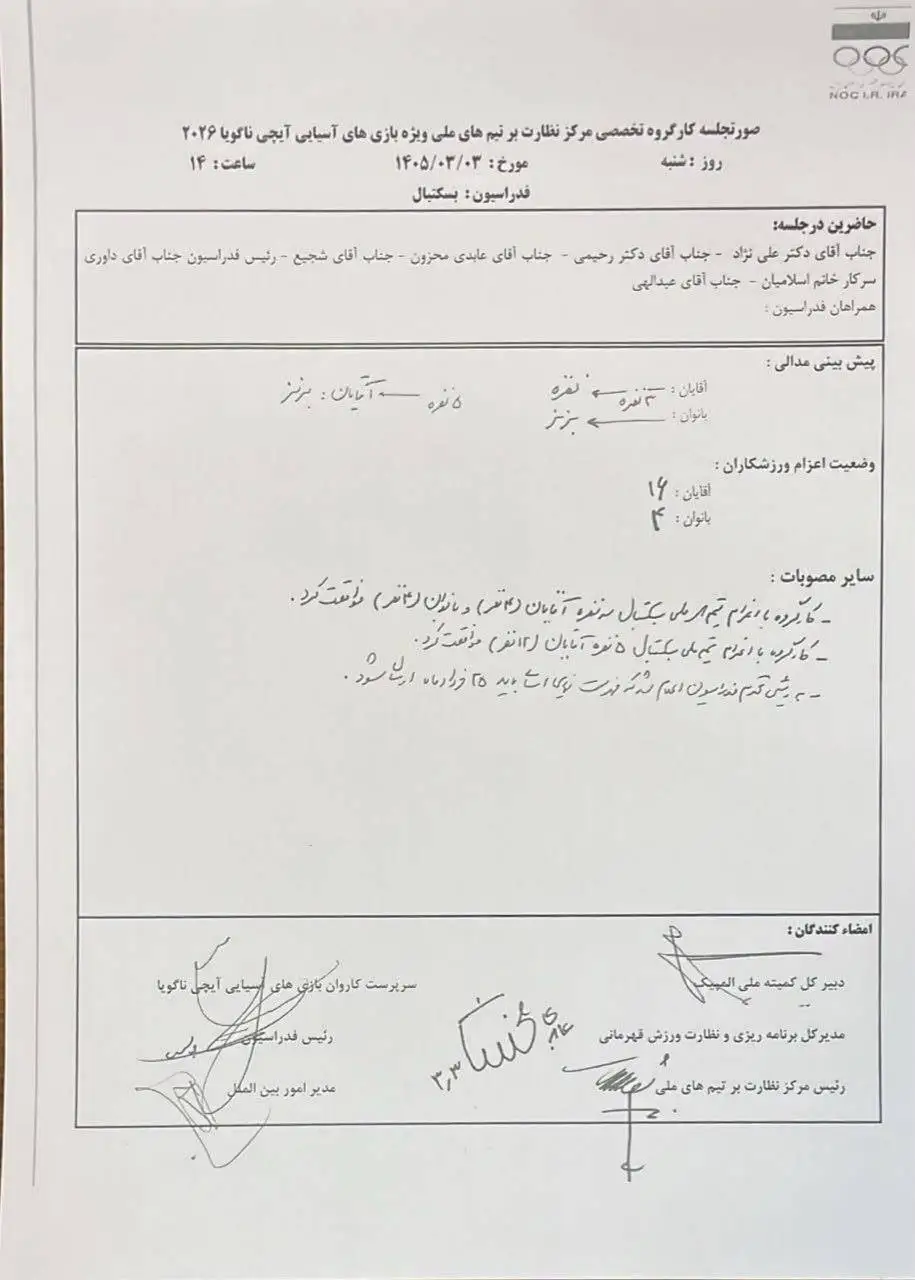 NOC I.R. IRA
صورتجلسه کارگروه تخصصی مرکز نظارت بر تیم های ملی ویژه بازی های آسیایی آیچی ناگویا ۲۰۲۶
روز : شنبه مورخ: ۱۴۰۵/۰۳/۰۳ ساعت: ۱۴
فدراسیون: بسکتبال
حاضرین درجلسه:
جناب آقای دکتر علی نژاد - جناب آقای دکتر رحیمی - جناب آقای عابدی محزون - جناب آقای شجیع - رئیس فدراسیون جناب آقای داوری
سرکار خانم اسلامیان - جناب آقای عبدالهی
همراهان فدراسیون :
پیش بینی مدالی :
آقایان : ۳ نفره نقره ۵ نفره آقایان : برنز
بانوان : برنز
وضعیت اعزام ورزشکاران :
آقایان : ۱۶
بانوان : ۴
سایر مصوبات :
- کارگروه با اعزام تیم های ملی بسکتبال سه نفره آقایان (۴ نفر) و بانوان (۴ نفر) موافقت کرد.
- کارگروه با اعزام تیم ملی بسکتبال ۵ نفره آقایان (۱۲ نفر) موافقت کرد.
- به رئیس محترم فدراسیون اعلام شد که فهرست نهایی اسامی باید ۲۵ خردادماه ارسال شود.
امضاء کنندگان :
دبیر کل کمیته ملی المپیک سرپرست کاروان بازی های آسیایی آیچی ناگویا
مدیرکل برنامه ریزی و نظارت ورزش قهرمانی رئیس فدراسیون
رئیس مرکز نظارت بر تیم های ملی مدیر امور بین الملل
۳٫۳